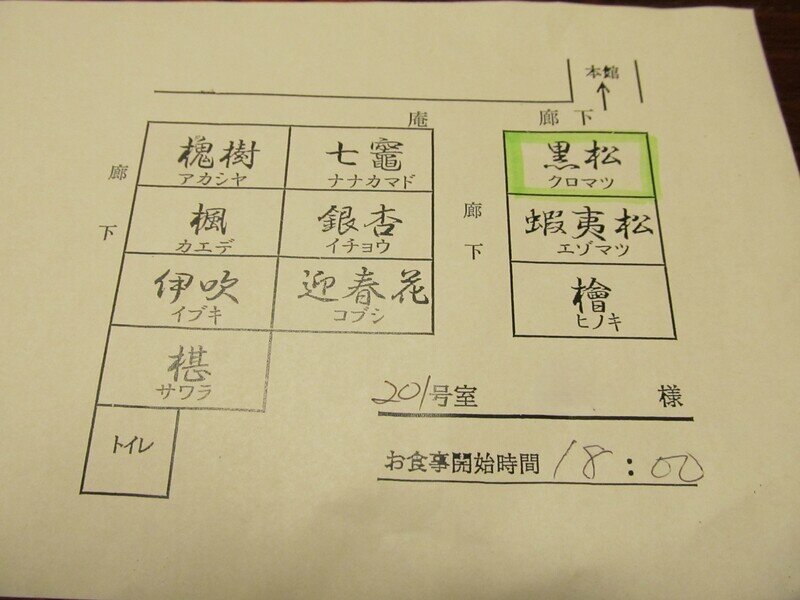 本館
↑
庵
廊下
廊下
槐樹
アカシヤ
七竈
ナナカマド
黒松
クロマツ
楓
カエデ
銀杏
イチョウ
廊下
蝦夷松
エゾマツ
伊吹
イブキ
迎春花
コブシ
檜
ヒノキ
椹
サワラ
トイレ
201号室 様
お食事開始時間 18:00